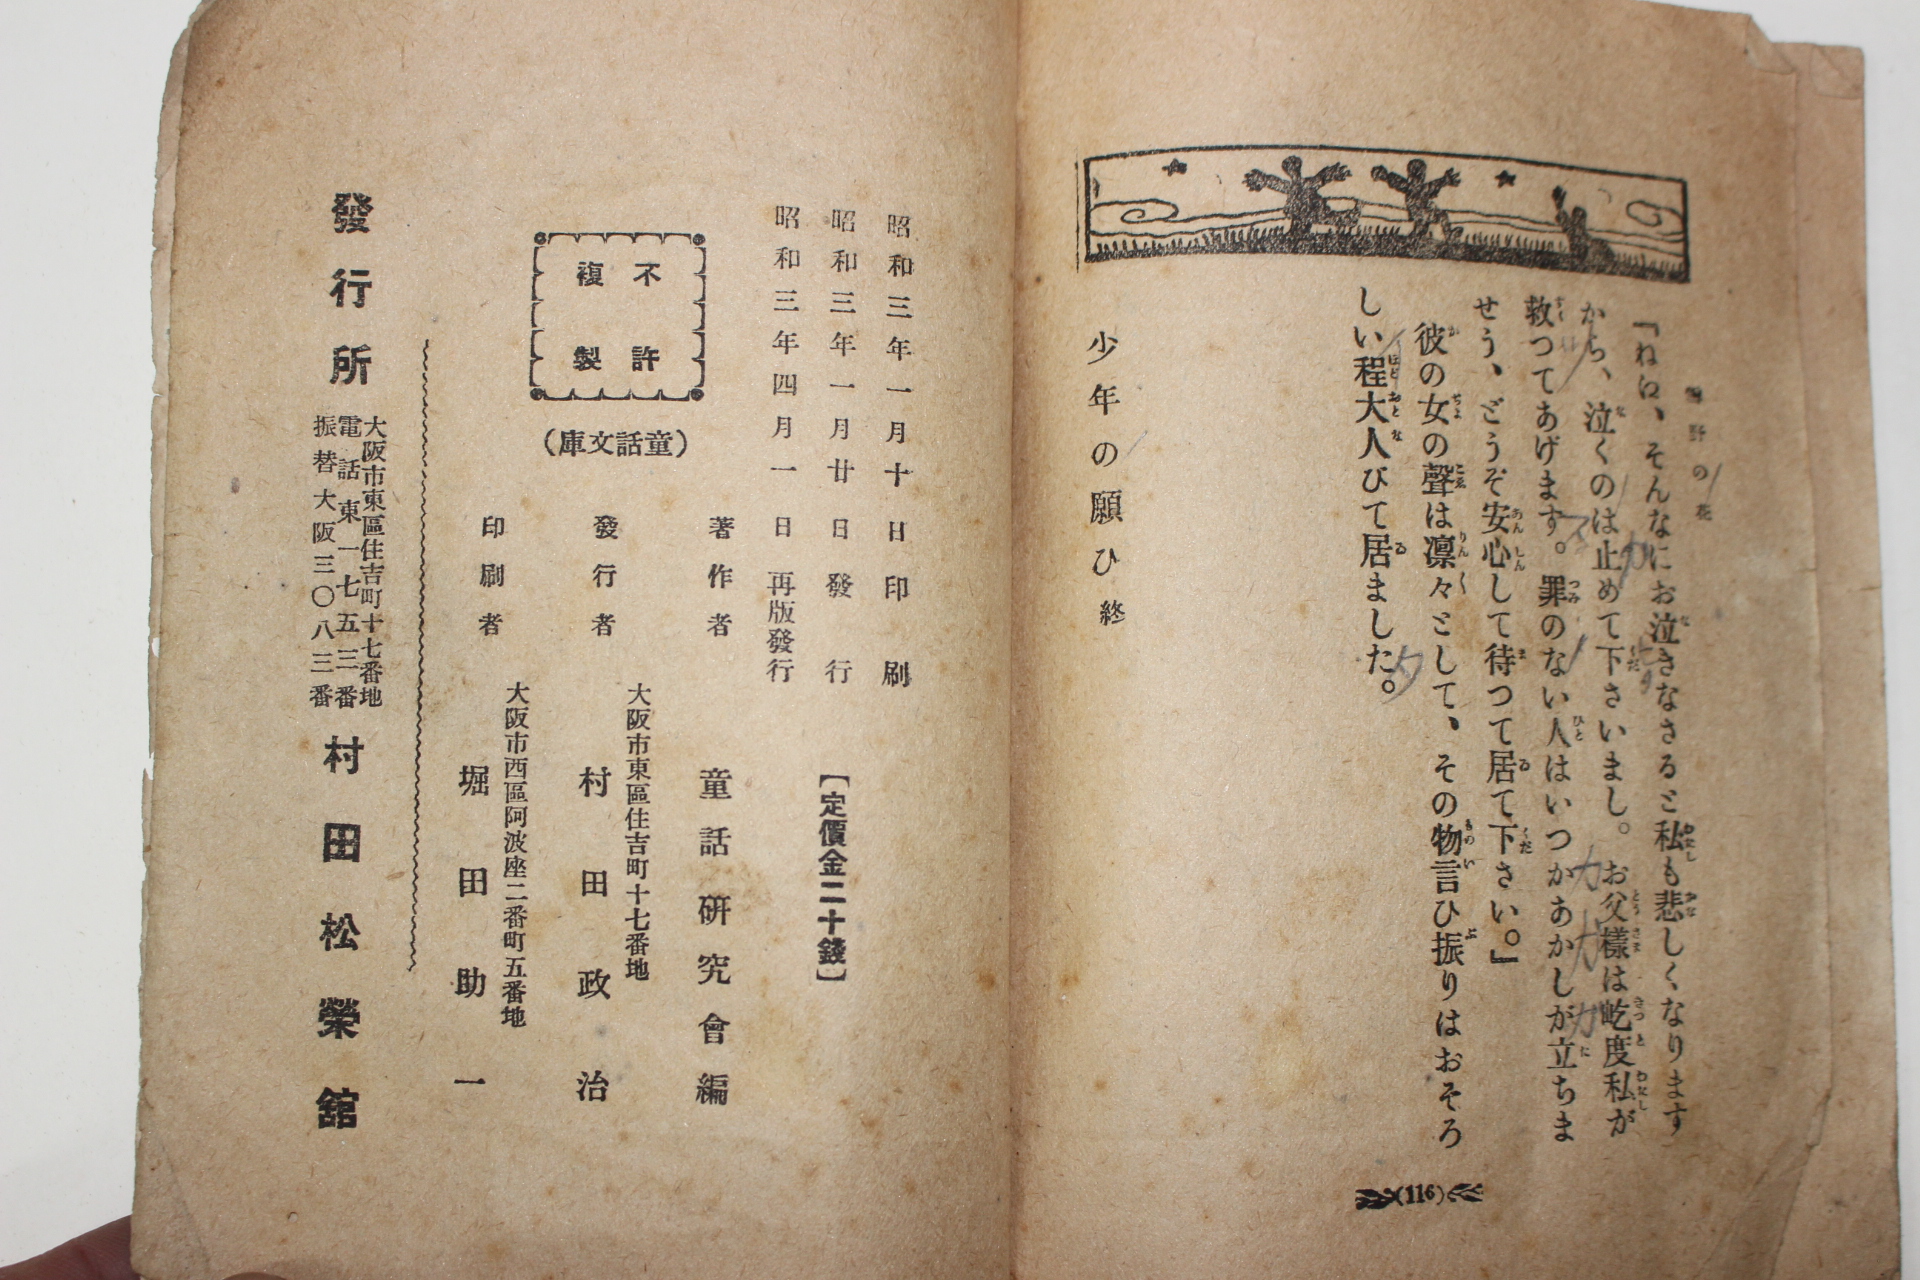 野の花
「ねに、そんなにお泣きなさると私も悲しくなります
から、泣くのは止めて下さいまし。お父樣は屹度私が
救つてあげます。罪のない人はいつかあかしが立ちま
せう、どうぞ安心して待つて居て下さい。」
彼の女の聲は凛々として、その物言ひ振りはおそろ
しい程大人びて居ました。
少年の願ひ 終
(116)
昭和三年一月十日印刷
昭和三年一月廿日發行
昭和三年四月一日再版發行
【定價金二十錢】
不許
複製
(童話文庫)
著作者 童話硏究會編
大阪市東區住吉町十七番地
發行者 村田政治
大阪市西區阿波座二番町五番地
印刷者 堀田助一
發行所
大阪市東區住吉町十七番地
電話東一七五三番
振替大阪三〇八三番
村田松榮舘